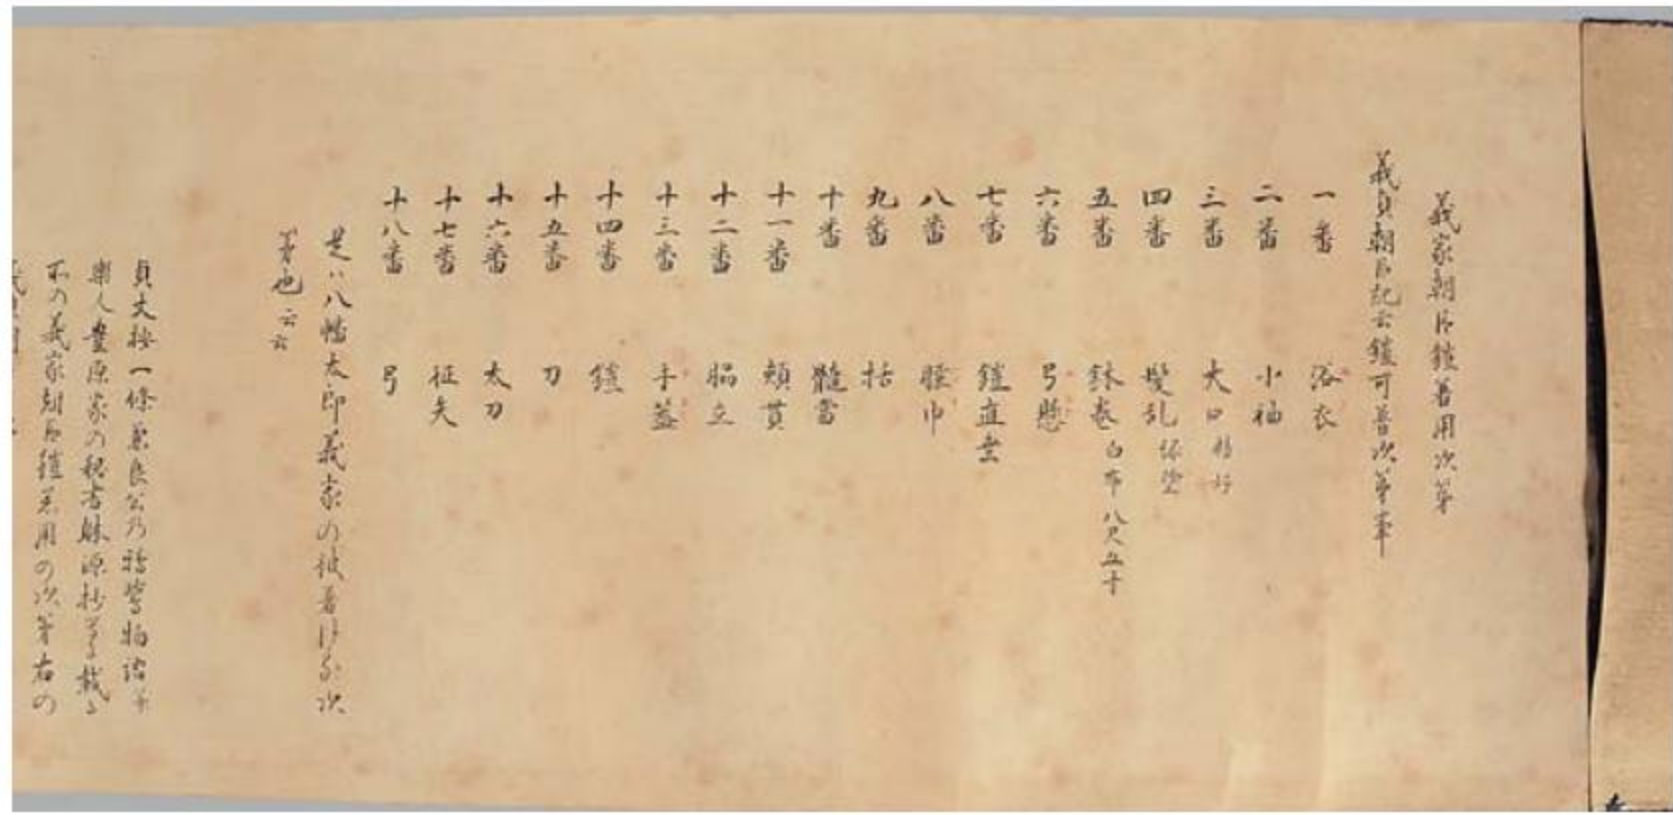 義家朝臣鎧着用次第
義貞朝臣記云鎧可着次第事
一番 浴衣
二番 小袖
三番 大口
四番 髪乱
五番 鉢巻 白布八尺五寸
六番 弓懸
七番 鎧直垂
八番 脛巾
九番 括
十番 髄当
十一番 頬貫
十二番 脇立
十三番 手蓋
十四番 鎧
十五番 刀
十六番 太刀
十七番 征矢
十八番 弓
是ハ八幡太郎義家の被着ける次
第也云云
貞丈按一條兼良公乃鴉鷺物語并
楽人豊原家の秘書體源抄等に載る
所の義家朝臣鎧着用の次第右の